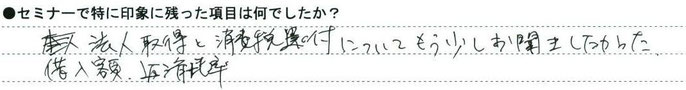 ●セミナーで特に印象に残った項目は何でしたか?
法人取得と消費税還付についてもう少しお聞きしたかった。
借入額.返済比率